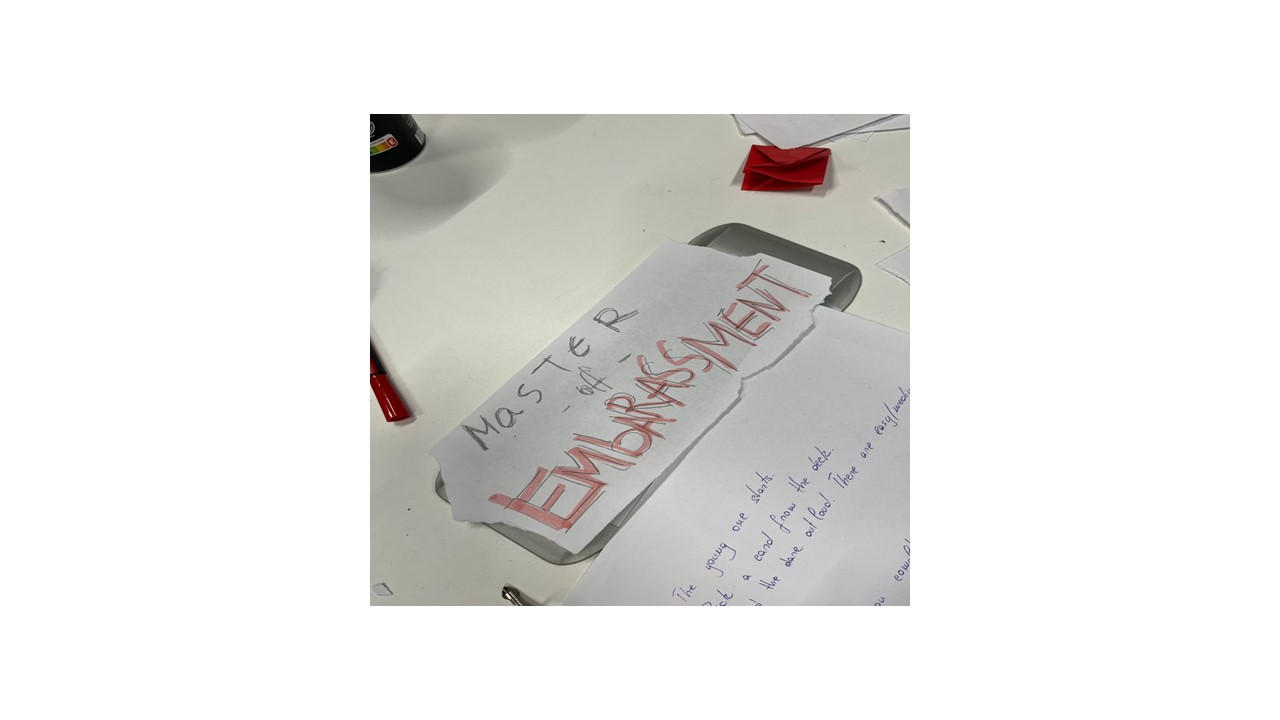 MaSTER
- off -
EMbARASSMENT
The young one starts.
a card from the deck.
the dare out loud. There are easy/